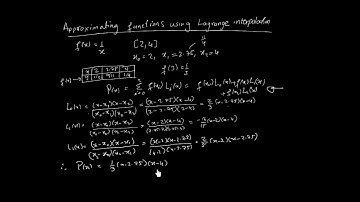 Approximating functions using Lagrange interpolation
f(x) = 1/x [2,4] 11/4
x₀ = 2, x₁ = 2.75, x₂ = 4
f(3) = 1/3
x 2 2.75 4
f(x) 1/2 4/11 1/4
P(x) = Σ f(xᵢ) Lᵢ(x) = f(x₀)L₀(x) + f(x₁)L₁(x)
+ f(x₂)L₂(x)
L₀(x) = (x-x₁)(x-x₂) / (x₀-x₁)(x₀-x₂) = (x-2.75)(x-4) / (2-2.75)(2-4) = 2/3 (x-2.75)(x-4)
L₁(x) = (x-x₀)(x-x₂) / (x₁-x₀)(x₁-x₂) = (x-2)(x-4) / (2.75-2)(2.75-4) = -16/15 (x-2)(x-4)
L₂(x) = (x-x₀)(x-x₁) / (x₂-x₀)(x₂-x₁) = (x-2)(x-2.75) / (4-2)(4-2.75) = 2/5 (x-2)(x-2.75)
∴ P(x) = 1/3 (x-2.75)(x-4)